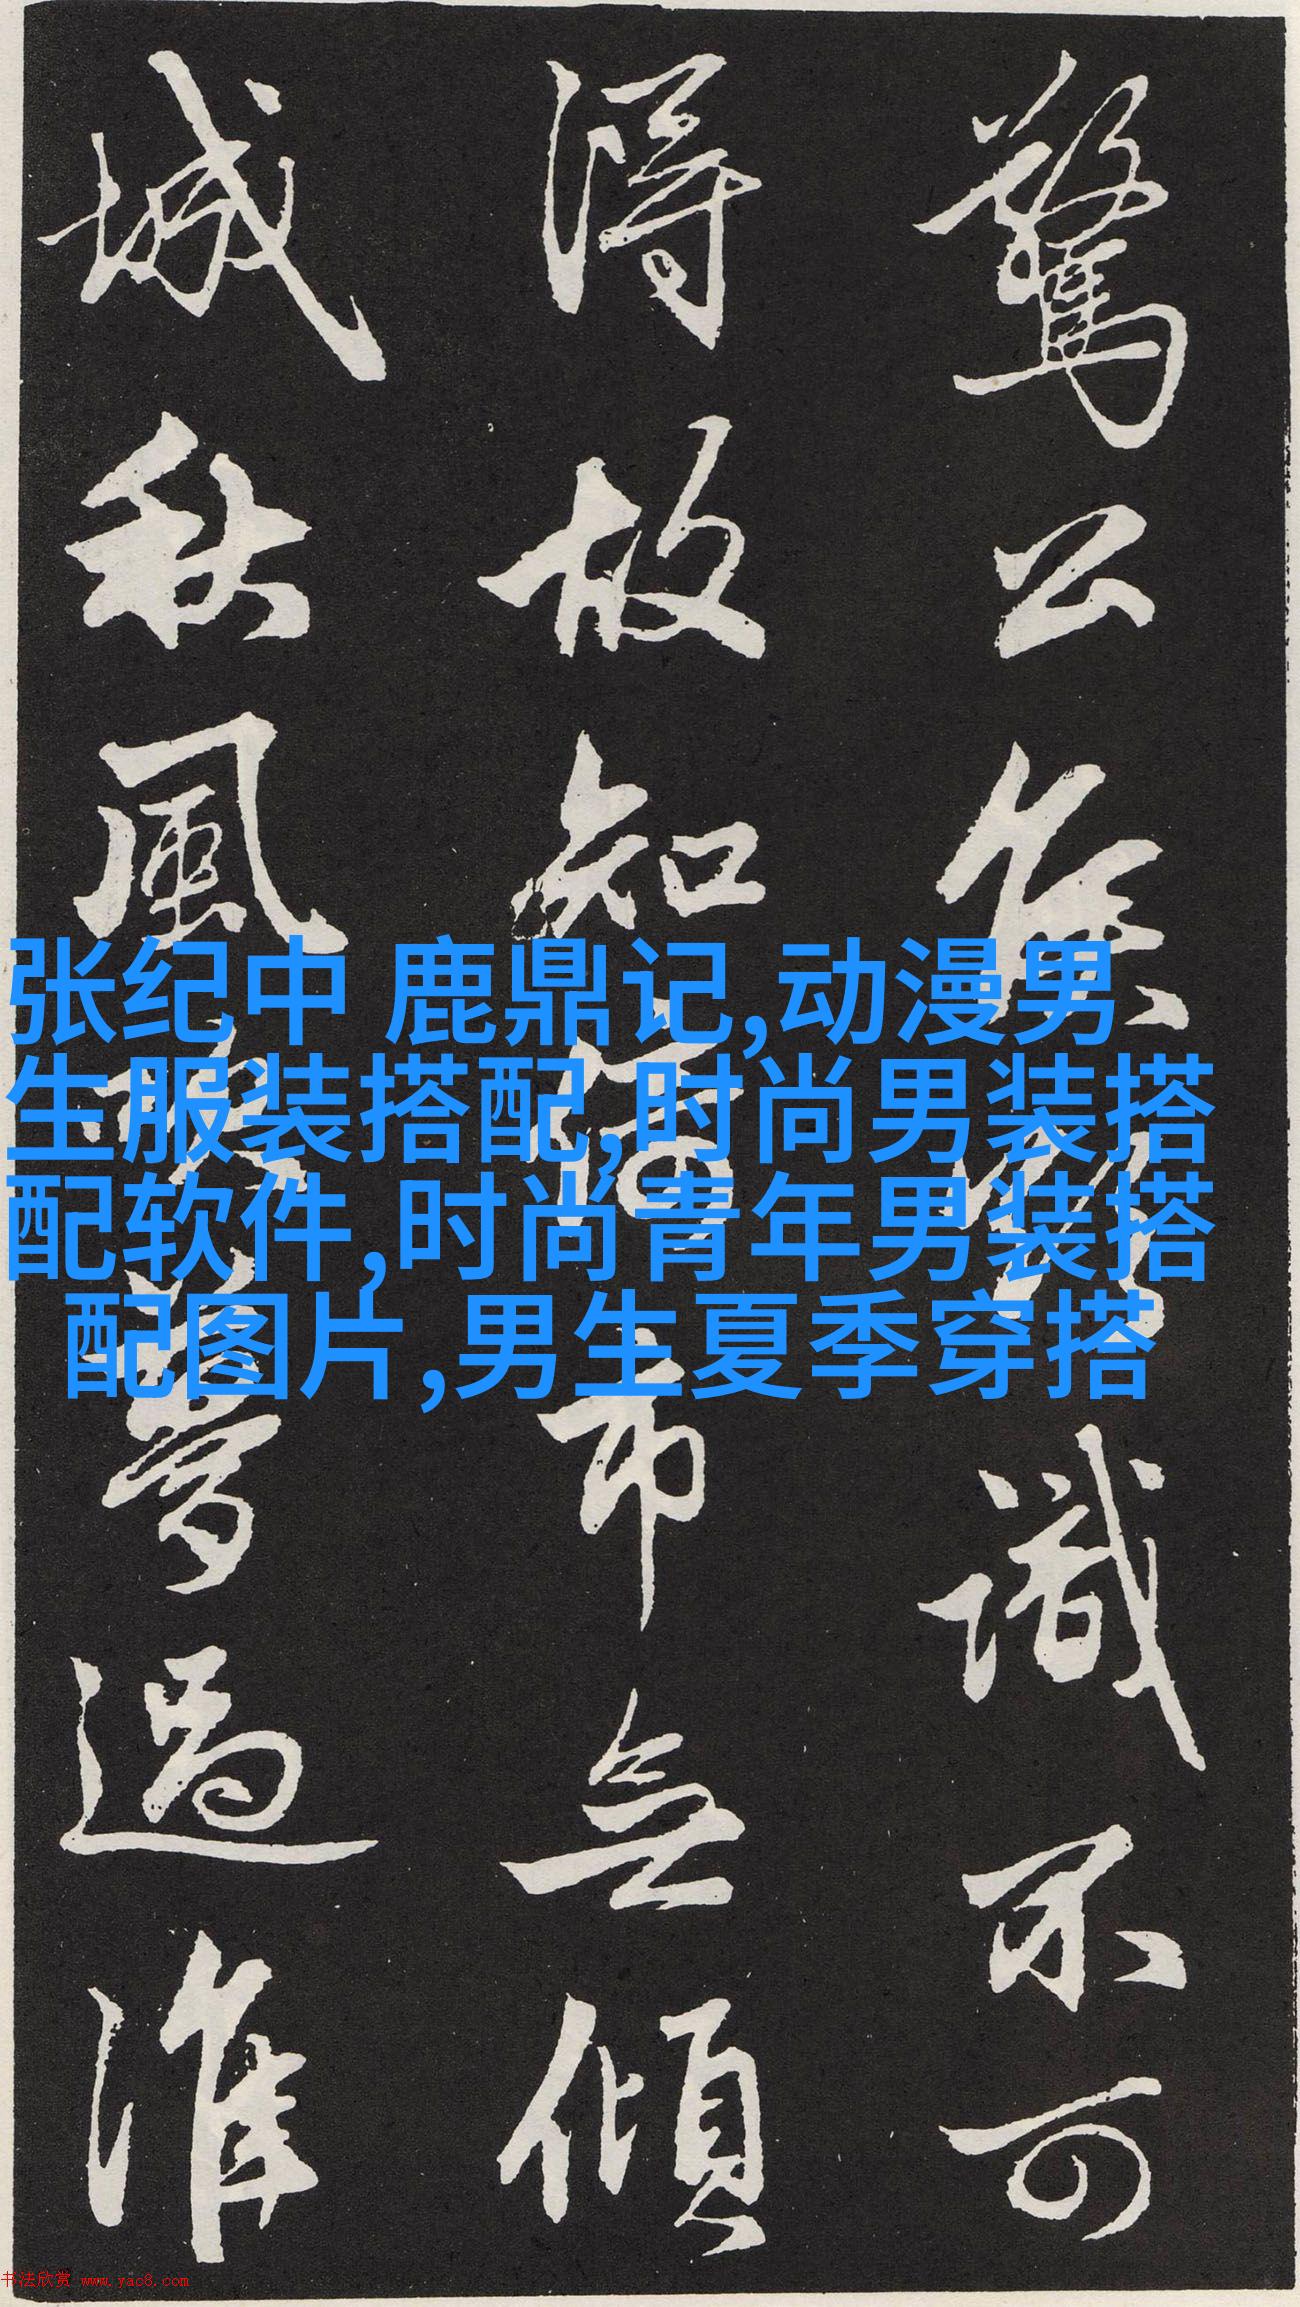 驚公識不可
得故知市無傾
城秋風夢過淮
张纪中 鹿鼎记,动漫男
生服装搭配,时尚男装搭
配软件,时尚青年男装搭
配图片,男生夏季穿搭
书法欣赏 www.yac8.com